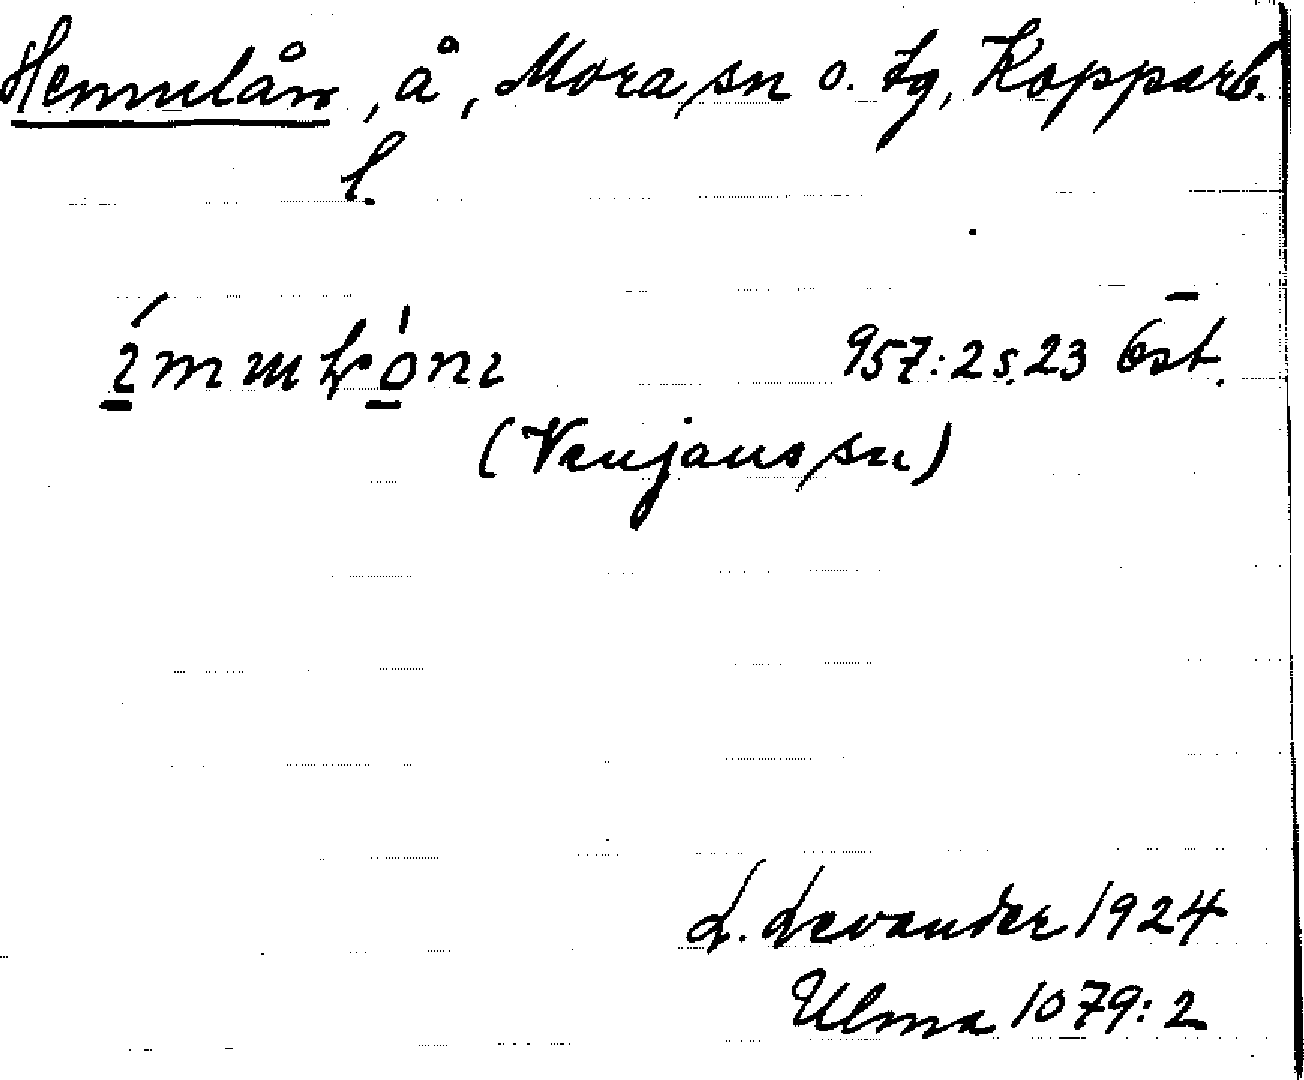 Hemulån, å, Mora sn o. tg, Kopparb.
l.
957:2 s. 23 Öst.
(Venjans sn)
L. Levander 1924
Ulma 1079:2